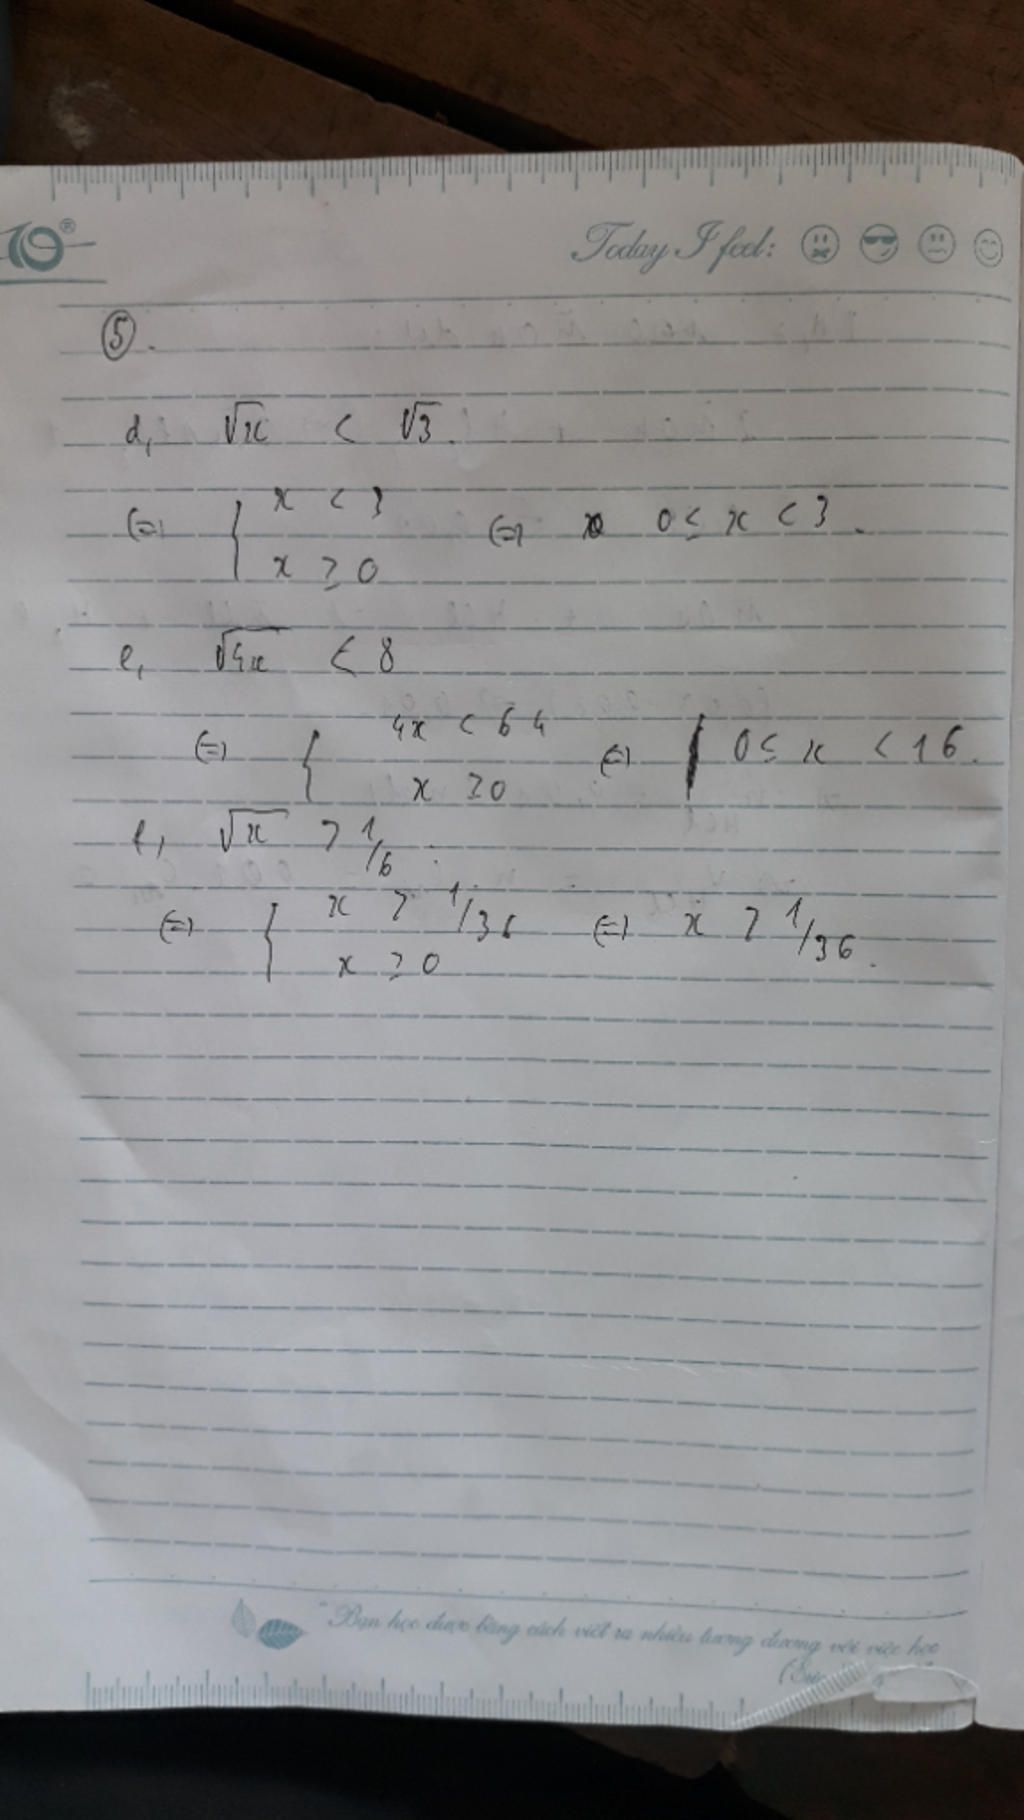 10®
Today I feel:
⑤.
d, √x < √3.
(=) { x < 3 (=) 0 ≤ x < 3.
x ≥ 0
e, √4x < 8
(=) { 4x < 64 (=) 0 ≤ x < 16.
x ≥ 0
f, √x > 1/6.
(=) { x > 1/36 (=) x > 1/36.
x ≥ 0
"Bạn học được bằng cách viết ra nhiều tương đương với việc học